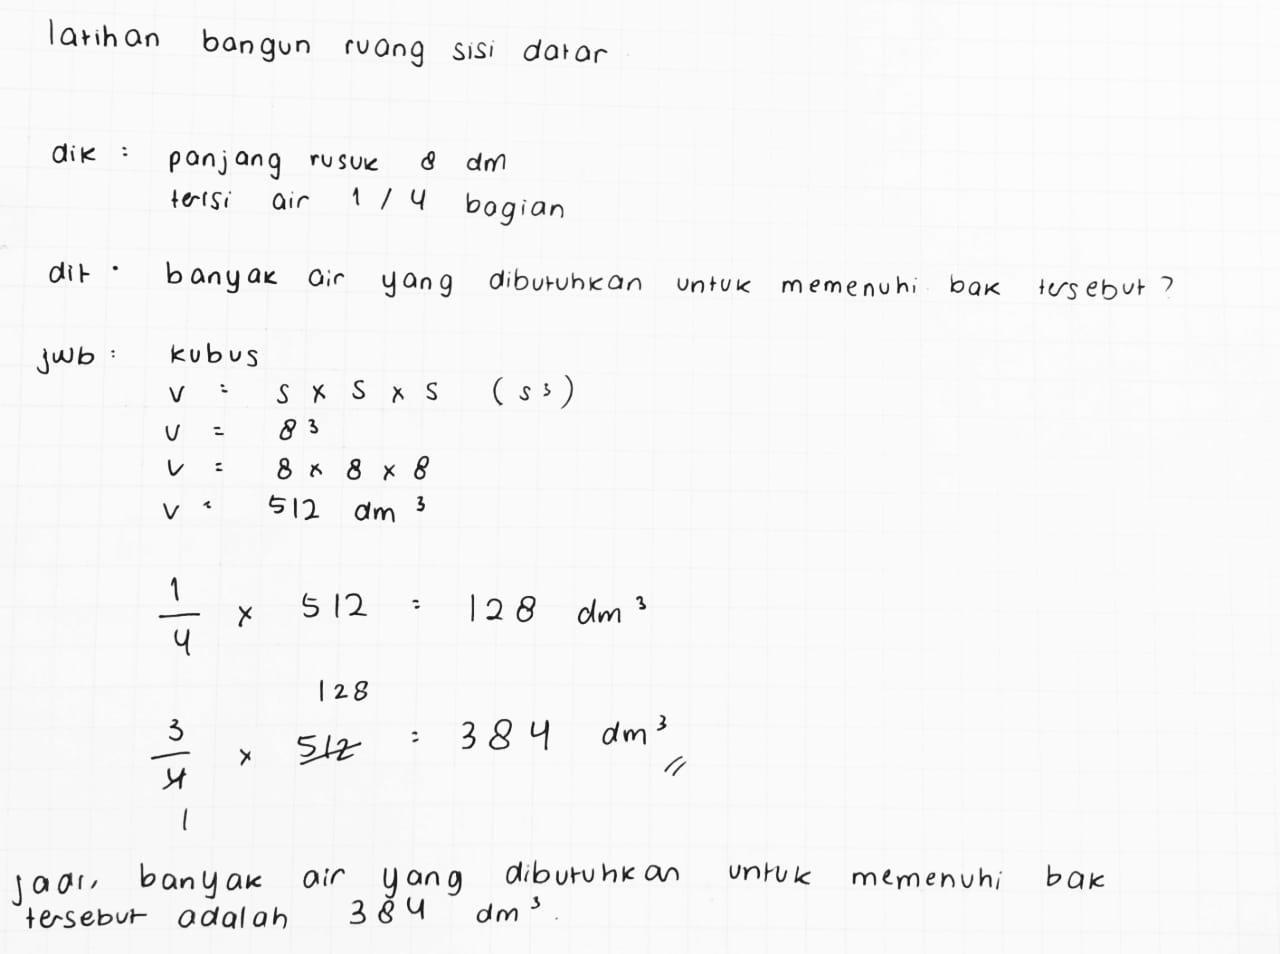 latihan bangun ruang sisi datar
dik : panjang rusuk 8 dm
terisi air 1 / 4 bagian
dit : banyak air yang dibutuhkan untuk memenuhi bak tersebut ?
jwb : kubus
v = s x s x s (s³)
v = 8³
v = 8 x 8 x 8
v = 512 dm³
1/4 x 512 = 128 dm³
128
3/4 x 512 = 384 dm³ //
1
jadi, banyak air yang dibutuhkan untuk memenuhi bak
tersebut adalah 384 dm³.